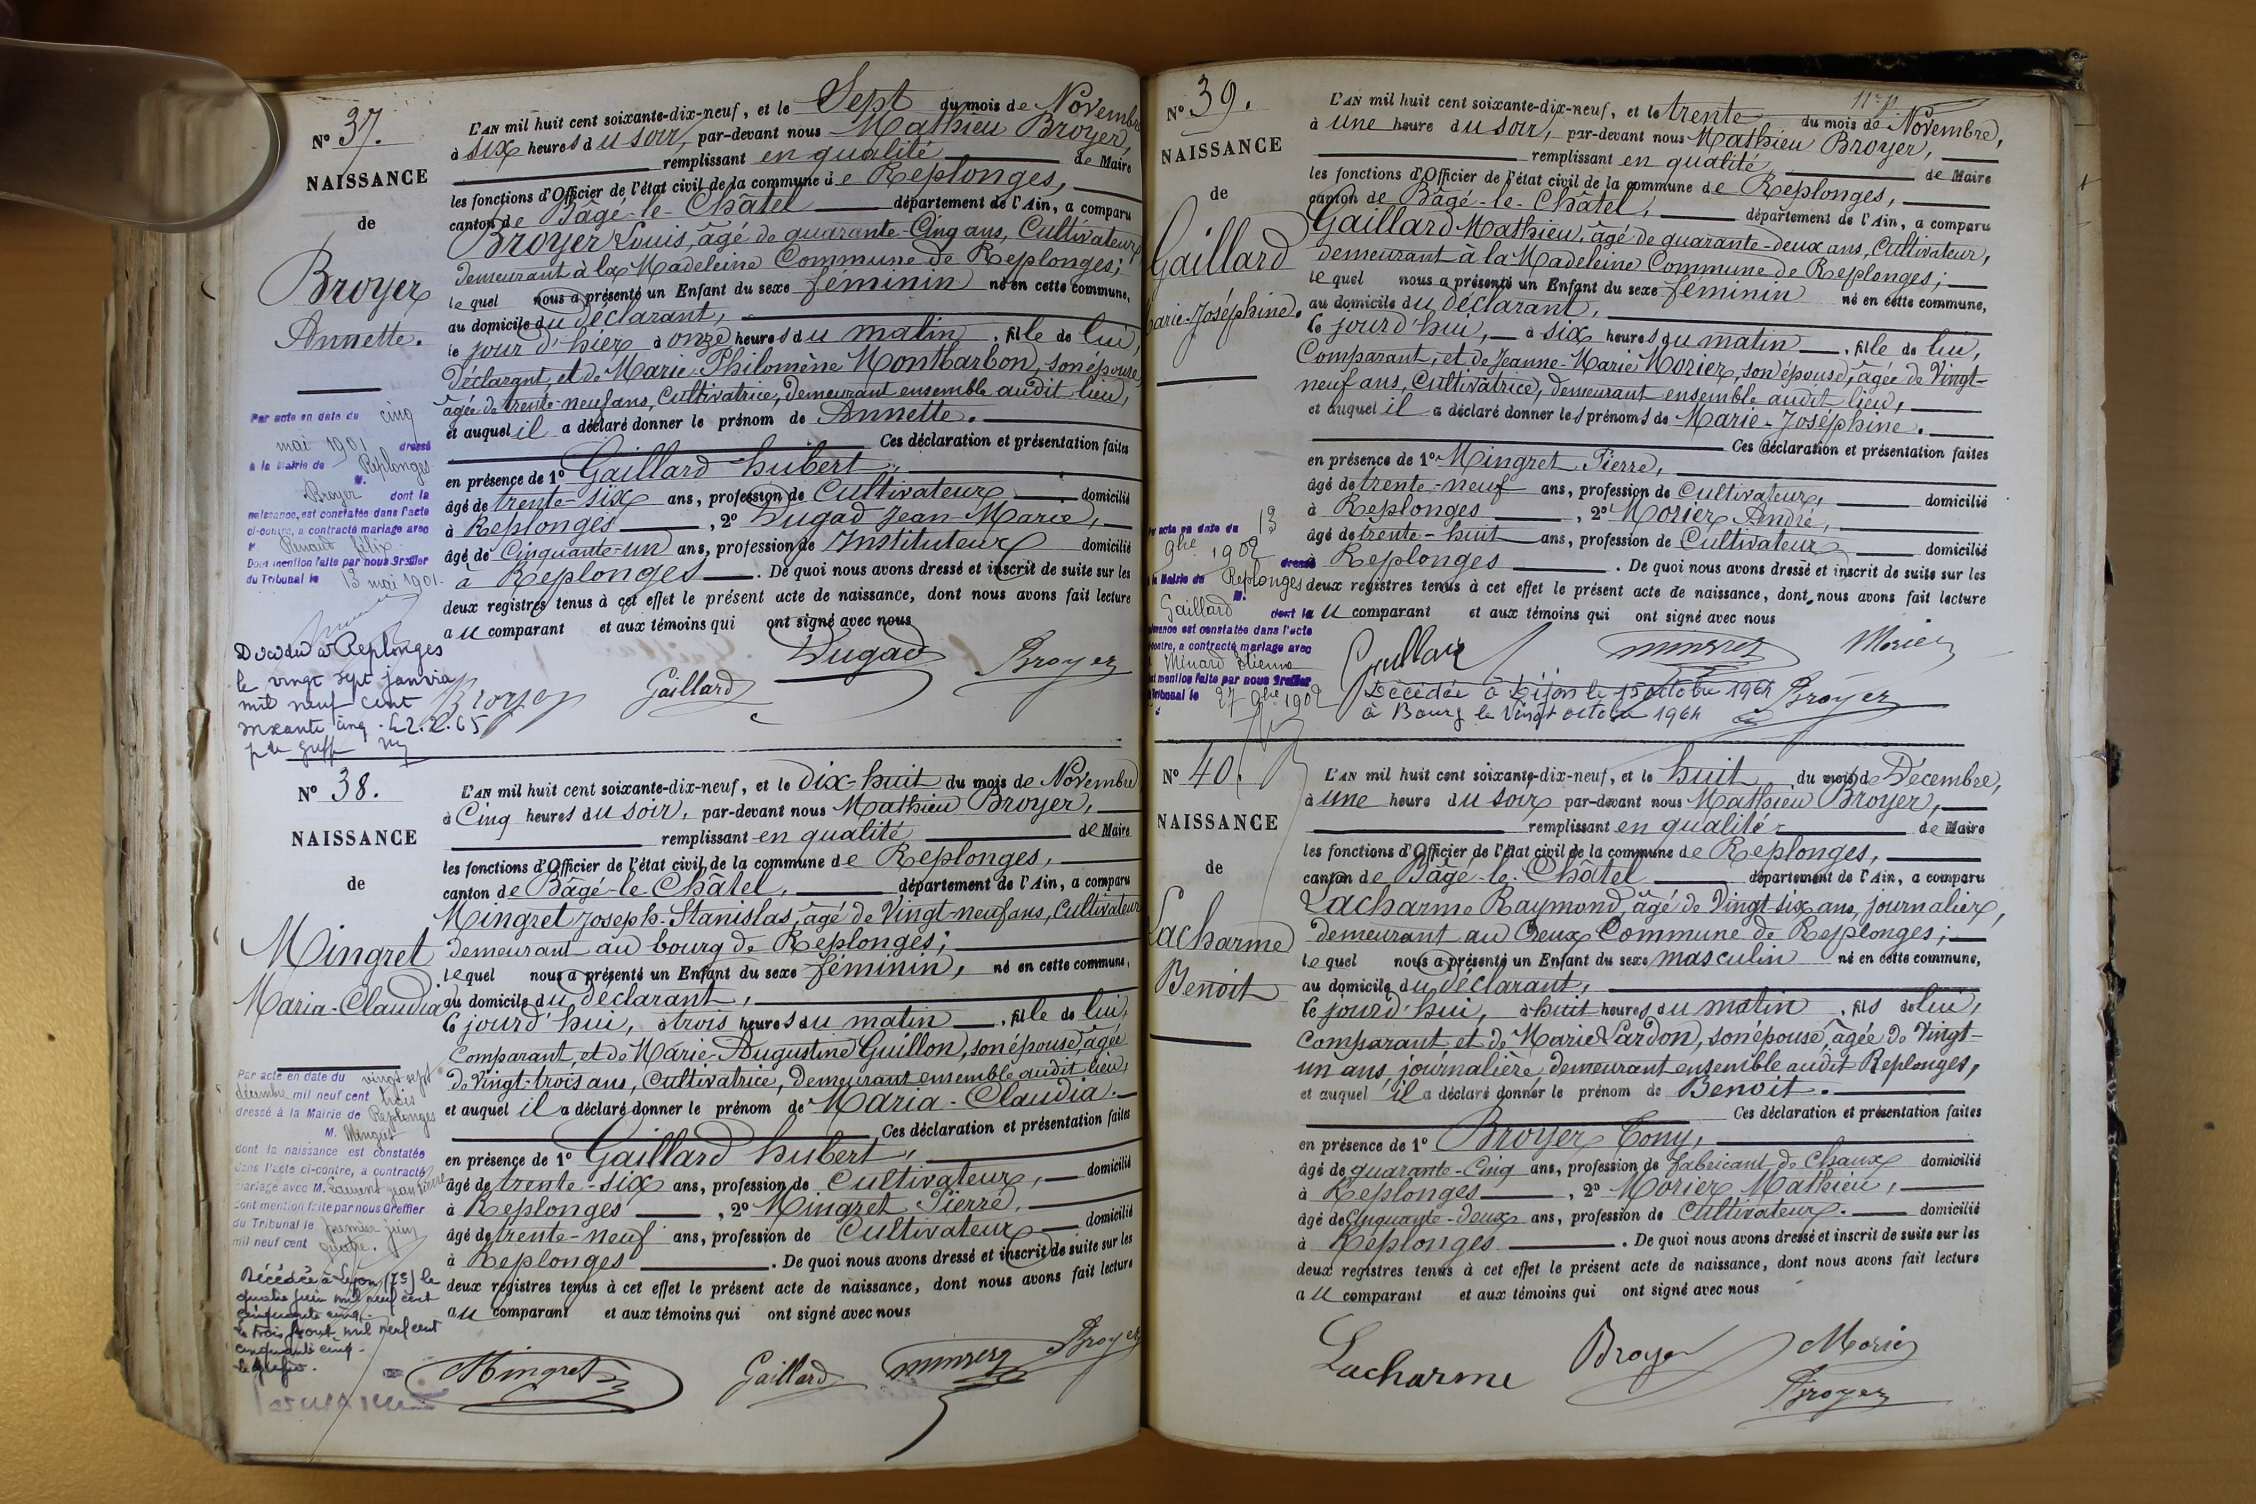 N° 37.
NAISSANCE
de
Broyer
Annette.
Par acte en date du cinq
mai 1901 dressé
à la Mairie de Replonges
M.
Broyer dont la
naissance, est constatée dans l'acte
ci-contre, a contracté mariage avec
Renaud félix
Dont mention faite par nous Greffier
du Tribunal le 13 mai 1901.
Décédée à Replonges
le vingt sept janvier
mil neuf cent
soixante cinq
L'AN mil huit cent soixante-dix-neuf, et le Sept du mois de Novembre
à six heures du soir, par-devant nous Mathieu Broyer,
remplissant en qualité de Maire
les fonctions d'Officier de l'état civil de la commune de Replonges,
canton de Bâgé-le-Châtel département de l'Ain, a comparu
Broyer Louis, âgé de quarante-Cinq ans, Cultivateur,
demeurant à la Madeleine Commune de Replonges;
lequel nous a présenté un Enfant du sexe féminin né en cette commune,
au domicile du déclarant,
le jour d'hier à onze heures du matin, fille de lui,
déclarant, et de Marie-Philomène Montbarbon, son épouse,
âgée de trente-neuf ans, Cultivatrice, demeurant ensemble audit lieu,
et auquel il a déclaré donner le prénom de Annette.
Ces déclaration et présentation faites
en présence de 1° Gaillard hubert,
âgé de trente-six ans, profession de Cultivateur domicilié
à Replonges, 2° Dugad Jean-Marie,
âgé de Cinquante-un ans, profession de Instituteur domicilié
à Replonges. De quoi nous avons dressé et inscrit de suite sur les
deux registres tenus à cet effet le présent acte de naissance, dont nous avons fait lecture
au comparant et aux témoins qui ont signé avec nous
Dugad
Broyer
Gaillard
Broyer
N° 38.
NAISSANCE
de
Mingret
Maria-Claudia
Par acte en date du vingt sept
décembre mil neuf cent trois
dressé à la Mairie de Replonges
M. Mingret
dont la naissance est constatée
dans l'acte ci-contre, a contracté
mariage avec M. Laurent jean Pierre
dont mention faite par nous Greffier
du Tribunal le premier juin
mil neuf cent quatre.
Décédée à Lyon le
quatre juin mil neuf cent
cinquante cinq.
le trois Août mil neuf cent
cinquante cinq.
L'AN mil huit cent soixante-dix-neuf, et le Dix-huit du mois de Novembre
à Cinq heures du soir, par-devant nous Mathieu Broyer,
remplissant en qualité de Maire
les fonctions d'Officier de l'état civil, de la commune de Replonges,
canton de Bâgé-le-Châtel, département de l'Ain, a comparu
Mingret Joseph-Stanislas, âgé de Vingt-neuf ans, Cultivateur
demeurant au bourg de Replonges;
lequel nous a présenté un Enfant du sexe féminin, né en cette commune,
au domicile du déclarant,
le jourd'hui, à trois heures du matin, fille de lui,
Comparant, et de Marie-Augustine Guillon, son épouse, âgée
de Vingt-trois ans, Cultivatrice, demeurant ensemble audit lieu,
et auquel il a déclaré donner le prénom de Maria-Claudia.
Ces déclaration et présentation faites
en présence de 1° Gaillard hubert,
âgé de trente-six ans, profession de Cultivateur, domicilié
à Replonges, 2° Mingret Pierre,
âgé de trente-neuf ans, profession de Cultivateur domicilié
à Replonges. De quoi nous avons dressé et inscrit de suite sur les
deux registres tenus à cet effet le présent acte de naissance, dont nous avons fait lecture
au comparant et aux témoins qui ont signé avec nous
Mingret
Gaillard
Mingret
Broyer
N° 39.
NAISSANCE
de
Gaillard
Marie-Joséphine.
acte en date du 13
9bre 1902 dressé
à la Mairie de Replonges
M.
Gaillard dont la
naissance est constatée dans l'acte
ci-contre, a contracté mariage avec
Minard Etienne
Dont mention faite par nous Greffier
Tribunal le 27 9bre 1902
L'AN mil huit cent soixante-dix-neuf, et le trente du mois de Novembre,
à Une heure du soir, par-devant nous Mathieu Broyer,
remplissant en qualité de Maire
les fonctions d'Officier de l'état civil de la commune de Replonges,
canton de Bâgé-le-Châtel, département de l'Ain, a comparu
Gaillard Mathieu, âgé de quarante-deux ans, Cultivateur,
demeurant à la Madeleine Commune de Replonges;
lequel nous a présenté un Enfant du sexe féminin né en cette commune,
au domicile du déclarant,
le jourd'hui, à six heures du matin, fille de lui,
Comparant, et de Jeanne-Marie Morier, son épouse, âgée de Vingt-
neuf ans, Cultivatrice, demeurant ensemble audit lieu,
et auquel il a déclaré donner les prénoms de Marie-Joséphine.
Ces déclaration et présentation faites
en présence de 1° Mingret Pierre,
âgé de trente-neuf ans, profession de Cultivateur, domicilié
à Replonges, 2° Morier André,
âgé de trente-huit ans, profession de Cultivateur domicilié
à Replonges. De quoi nous avons dressé et inscrit de suite sur les
deux registres tenus à cet effet le présent acte de naissance, dont nous avons fait lecture
au comparant et aux témoins qui ont signé avec nous
Gaillard
Mingret
Morier
Décédée à Dijon le 15 octobre 1964
à Bourg le Vingt octobre 1964
Broyer
N° 40.
NAISSANCE
de
Lacharme
Benoit
L'AN mil huit cent soixante-dix-neuf, et le huit du mois de Décembre,
à Une heure du soir par-devant nous Mathieu Broyer,
remplissant en qualité de Maire
les fonctions d'Officier de l'état civil de la commune de Replonges,
canton de Bâgé-le-Châtel département de l'Ain, a comparu
Lacharme Raymond, âgé de Vingt six ans, journalier,
demeurant au Creux Commune de Replonges;
lequel nous a présenté un Enfant du sexe masculin né en cette commune,
au domicile du déclarant,
le jourd'hui, à huit heures du matin, fils de lui,
Comparant et de Marie Lardon, son épouse, âgée de Vingt-
un ans, journalière, demeurant ensemble audit Replonges,
et auquel il a déclaré donner le prénom de Benoit.
Ces déclaration et présentation faites
en présence de 1° Broyer Tony,
âgé de quarante-Cinq ans, profession de fabricant de Chaux domicilié
à Replonges, 2° Morier Mathieu,
âgé de Cinquante-deux ans, profession de Cultivateur. domicilié
à Replonges. De quoi nous avons dressé et inscrit de suite sur les
deux registres tenus à cet effet le présent acte de naissance, dont nous avons fait lecture
au comparant et aux témoins qui ont signé avec nous
Lacharme
Broyer
Morier
Broyer